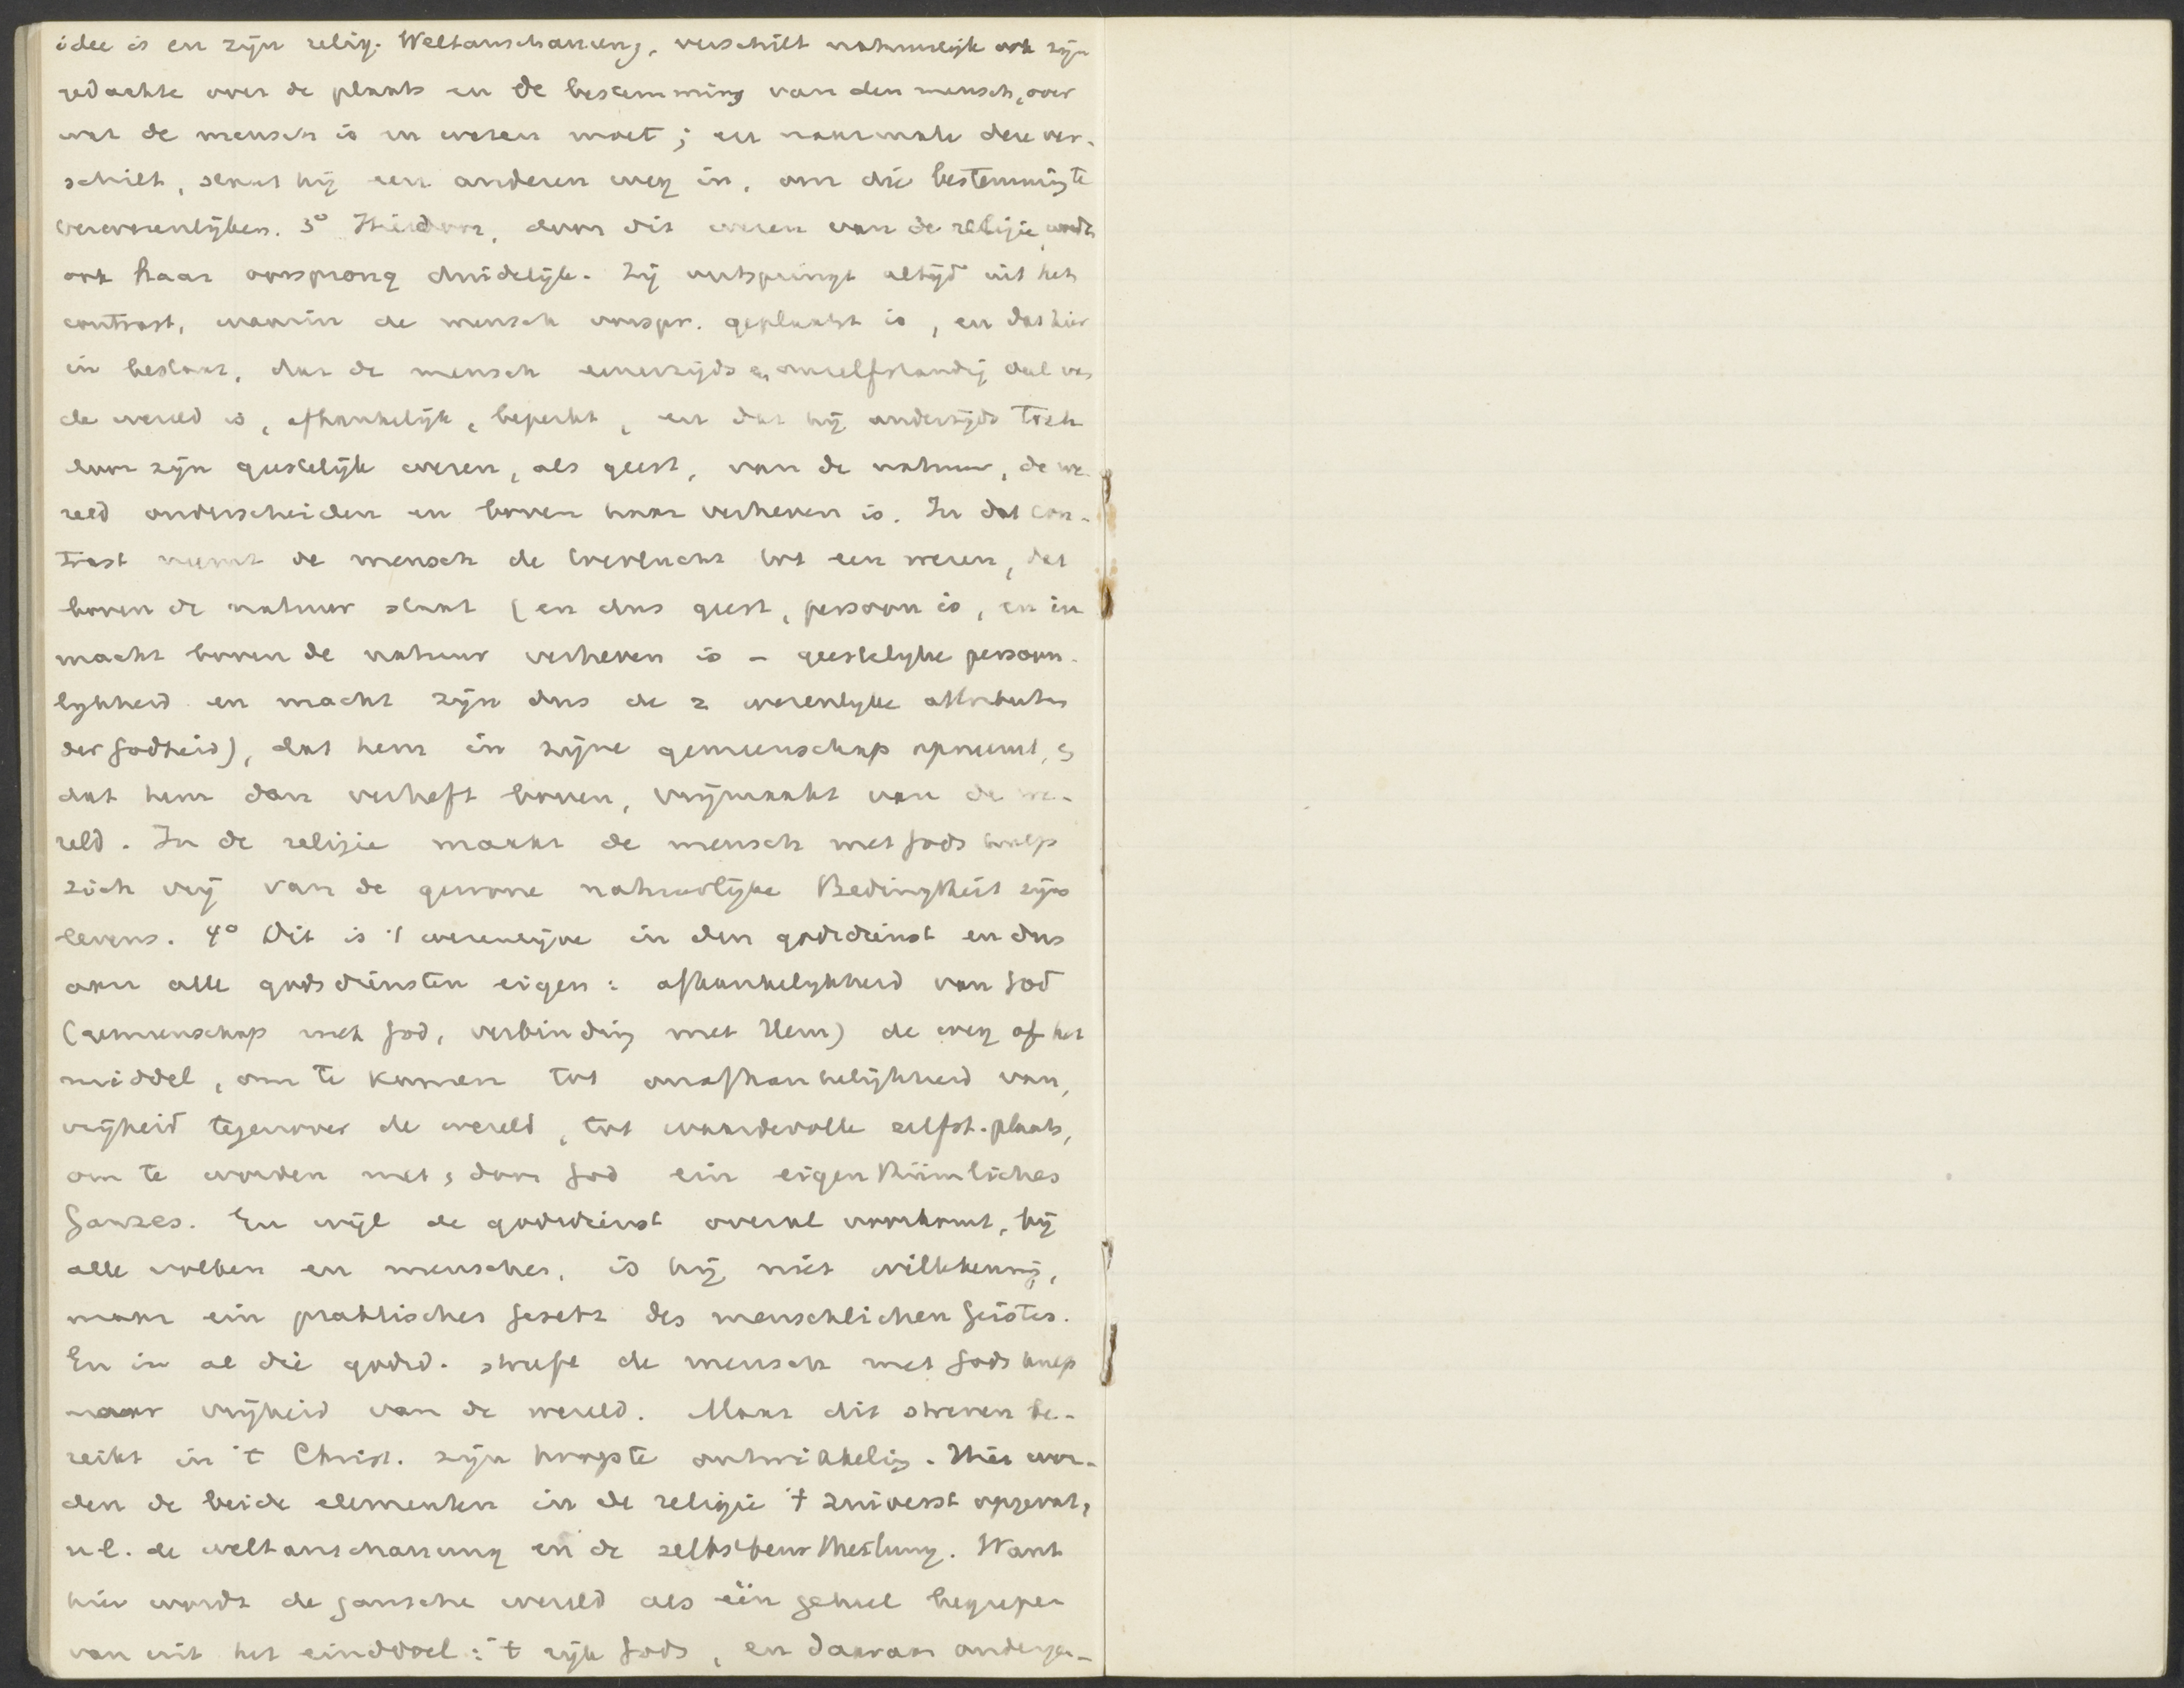 idee is en zijn relig. Weltanschauung, verschilt natuurlijk ook zijn
gedachte over de plaats en de bestemming van den mensch, over
wat de mensch is en wezen moet; en naarmate deze ver-
schilt, slaat hij een anderen weg in, om die bestemming te
verwezenlijken. 3° Hierdoor, door dit wezen van de religie, wordt
ook haar oorsprong duidelijk. Zij ontspringt altijd uit het
contrast, waarin de mensch oorspr. geplaatst is, en dat hier
in bestaat, dat de mensch eenerzijds een onzelfstandig deel van
de wereld is, afhankelijk, beperkt, en dat hij anderzijds toch
door zijn geestelijk wezen, als geest, van de natuur, de we-
reld onderscheiden en boven haar verheven is. In dat con-
trast neemt de mensch de toevlucht tot een wezen, dat
boven de natuur staat (en dus geest, persoon is, en in
macht boven de natuur verheven is – geestelijke persoon-
lijkheid en macht zijn dus de 2 wezenlijke attributen
der Godheid), dat hem in zijne gemeenschap opneemt, en
dat hem dan verheft boven, vrijmaakt van de we-
reld. In de religie maakt de mensch met Gods hulp
zich vrij van de gewone natuurlijke Bedingtheit zijns
levens. 4° Dit is 't wezenlijke in den godsdienst en dus
aan alle godsdiensten eigen: afhankelijkheid van God
(gemeenschap met God, verbinding met Hem) de weg of het
middel, om te komen tot onafhankelijkheid van,
vrijheid tegenover de wereld, tot waardevolle zelfst. plaats,
om te worden met, door God ein eigenthümliches
Ganzes. En wijl de godsdienst overal voorkomt, bij
alle volken en menschen, is hij niet willekeurig,
maar ein praktisches Gesetz des menschlichen Geistes.
En in al die godsd. streeft de mensch met Gods hulp
naar vrijheid van de wereld. Maar dit streven be-
reikt in 't Christ. zijn hoogste ontwikkeling. Hier wor-
den de beide elementen in de religie 't zuiverst opgevat,
n.l. de weltanschauung en de selbstbeurtheilung. Want
hier wordt de gansche wereld als één geheel begrepen
van uit het einddoel: 't rijk Gods, en daaraan onderge-